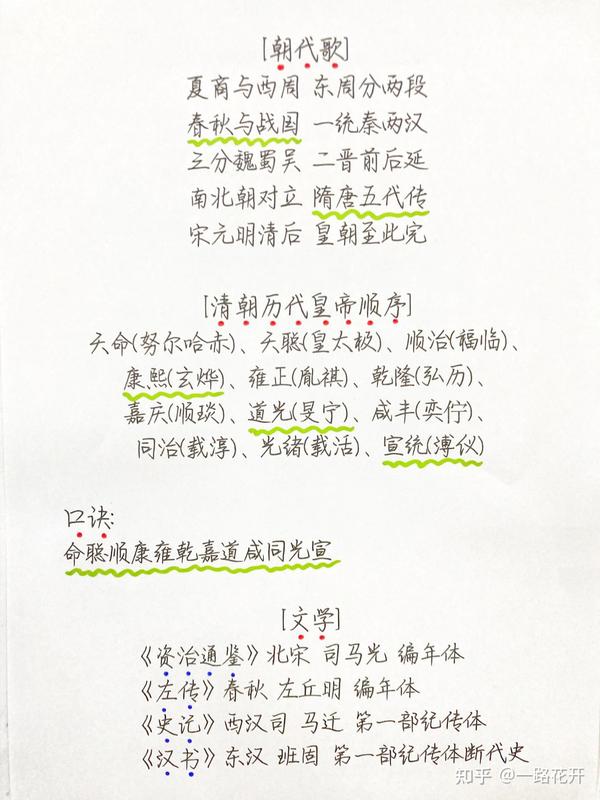 [朝代歌]
夏商与西周 东周分两段
春秋与战国 一统秦两汉
三分魏蜀吴 二晋前后延
南北朝对立 隋唐五代传
宋元明清后 皇朝至此完
[清朝历代皇帝顺序]
天命(努尔哈赤)、天聪(皇太极)、顺治(福临)、
康熙(玄烨)、雍正(胤祺)、乾隆(弘历)、
嘉庆(顺琰)、道光(旻宁)、咸丰(奕佇)、
同治(载淳)、光绪(载活)、宣统(溥仪)
口诀:
命聪顺康雍乾嘉道咸同光宣
[文学]
《资治通鉴》北宋 司马光 编年体
《左传》春秋 左丘明 编年体
《史记》西汉司 马迁 第一部纪传体
《汉书》东汉 班固 第一部纪传体断代史
知乎 @一路花开